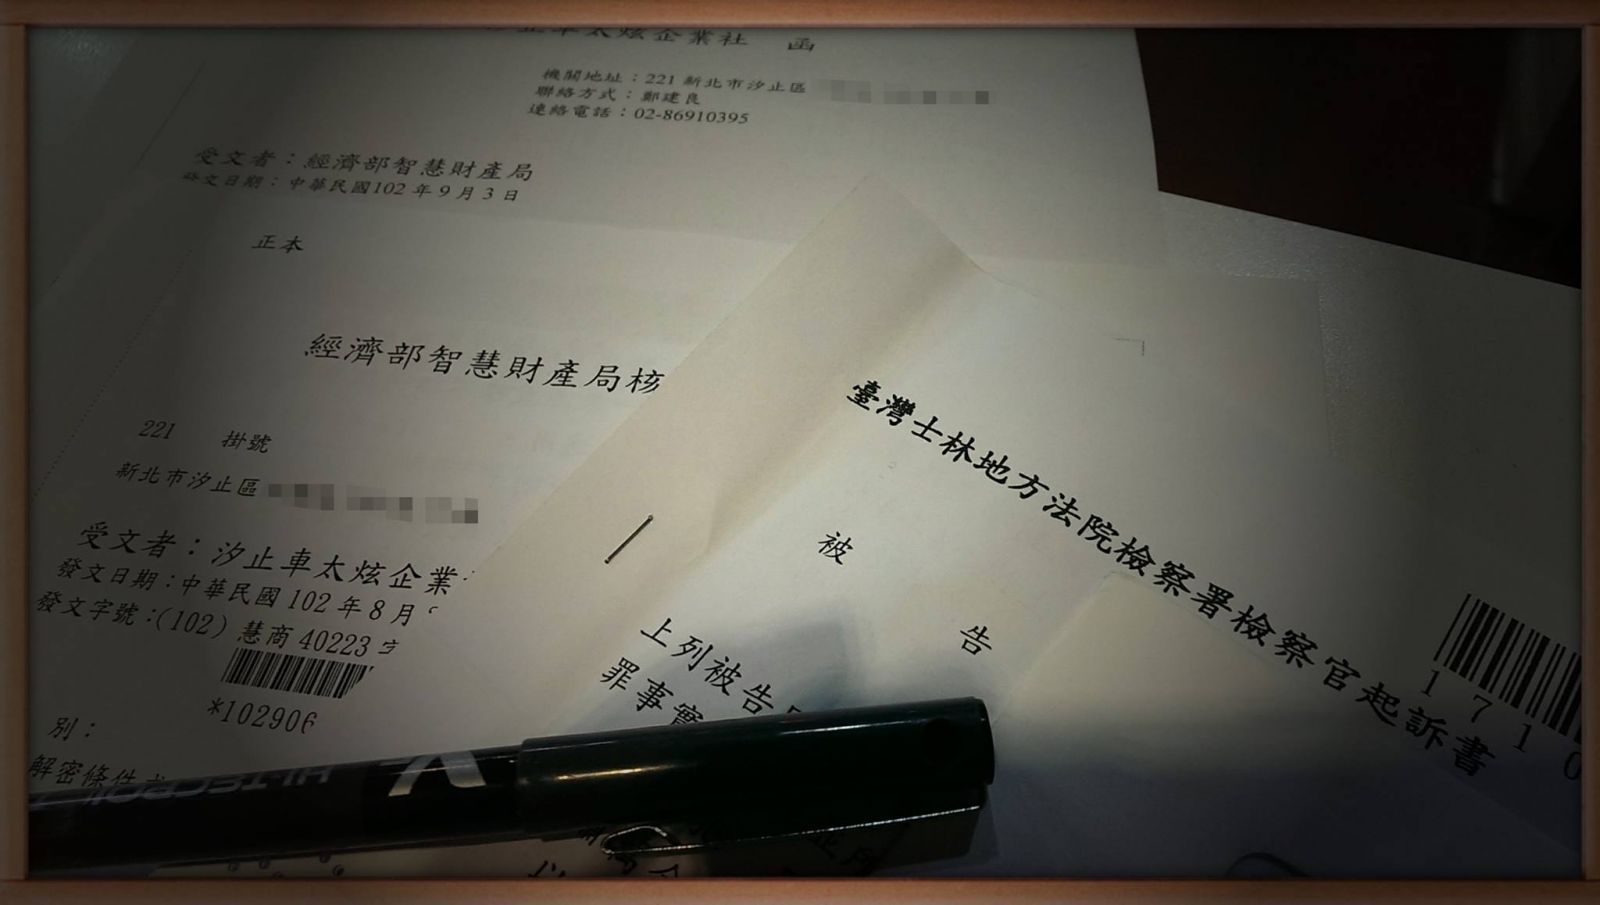 汐止車太炫企業社 函
機關地址：221 新北市汐止區
聯絡方式：鄭建良
連絡電話：02-86910395
受文者：經濟部智慧財產局
發文日期：中華民國102年9月3日
正本
經濟部智慧財產局核
221 掛號
新北市汐止區
受文者：汐止車太炫企業
發文日期：中華民國 102 年 8 月
發文字號：(102) 慧商 40223
*102906
別：
解密條件
臺灣士林地方法院檢察署檢察官起訴書
1710
被 告
上列被告
罪事實
HI-TECPOINT
V